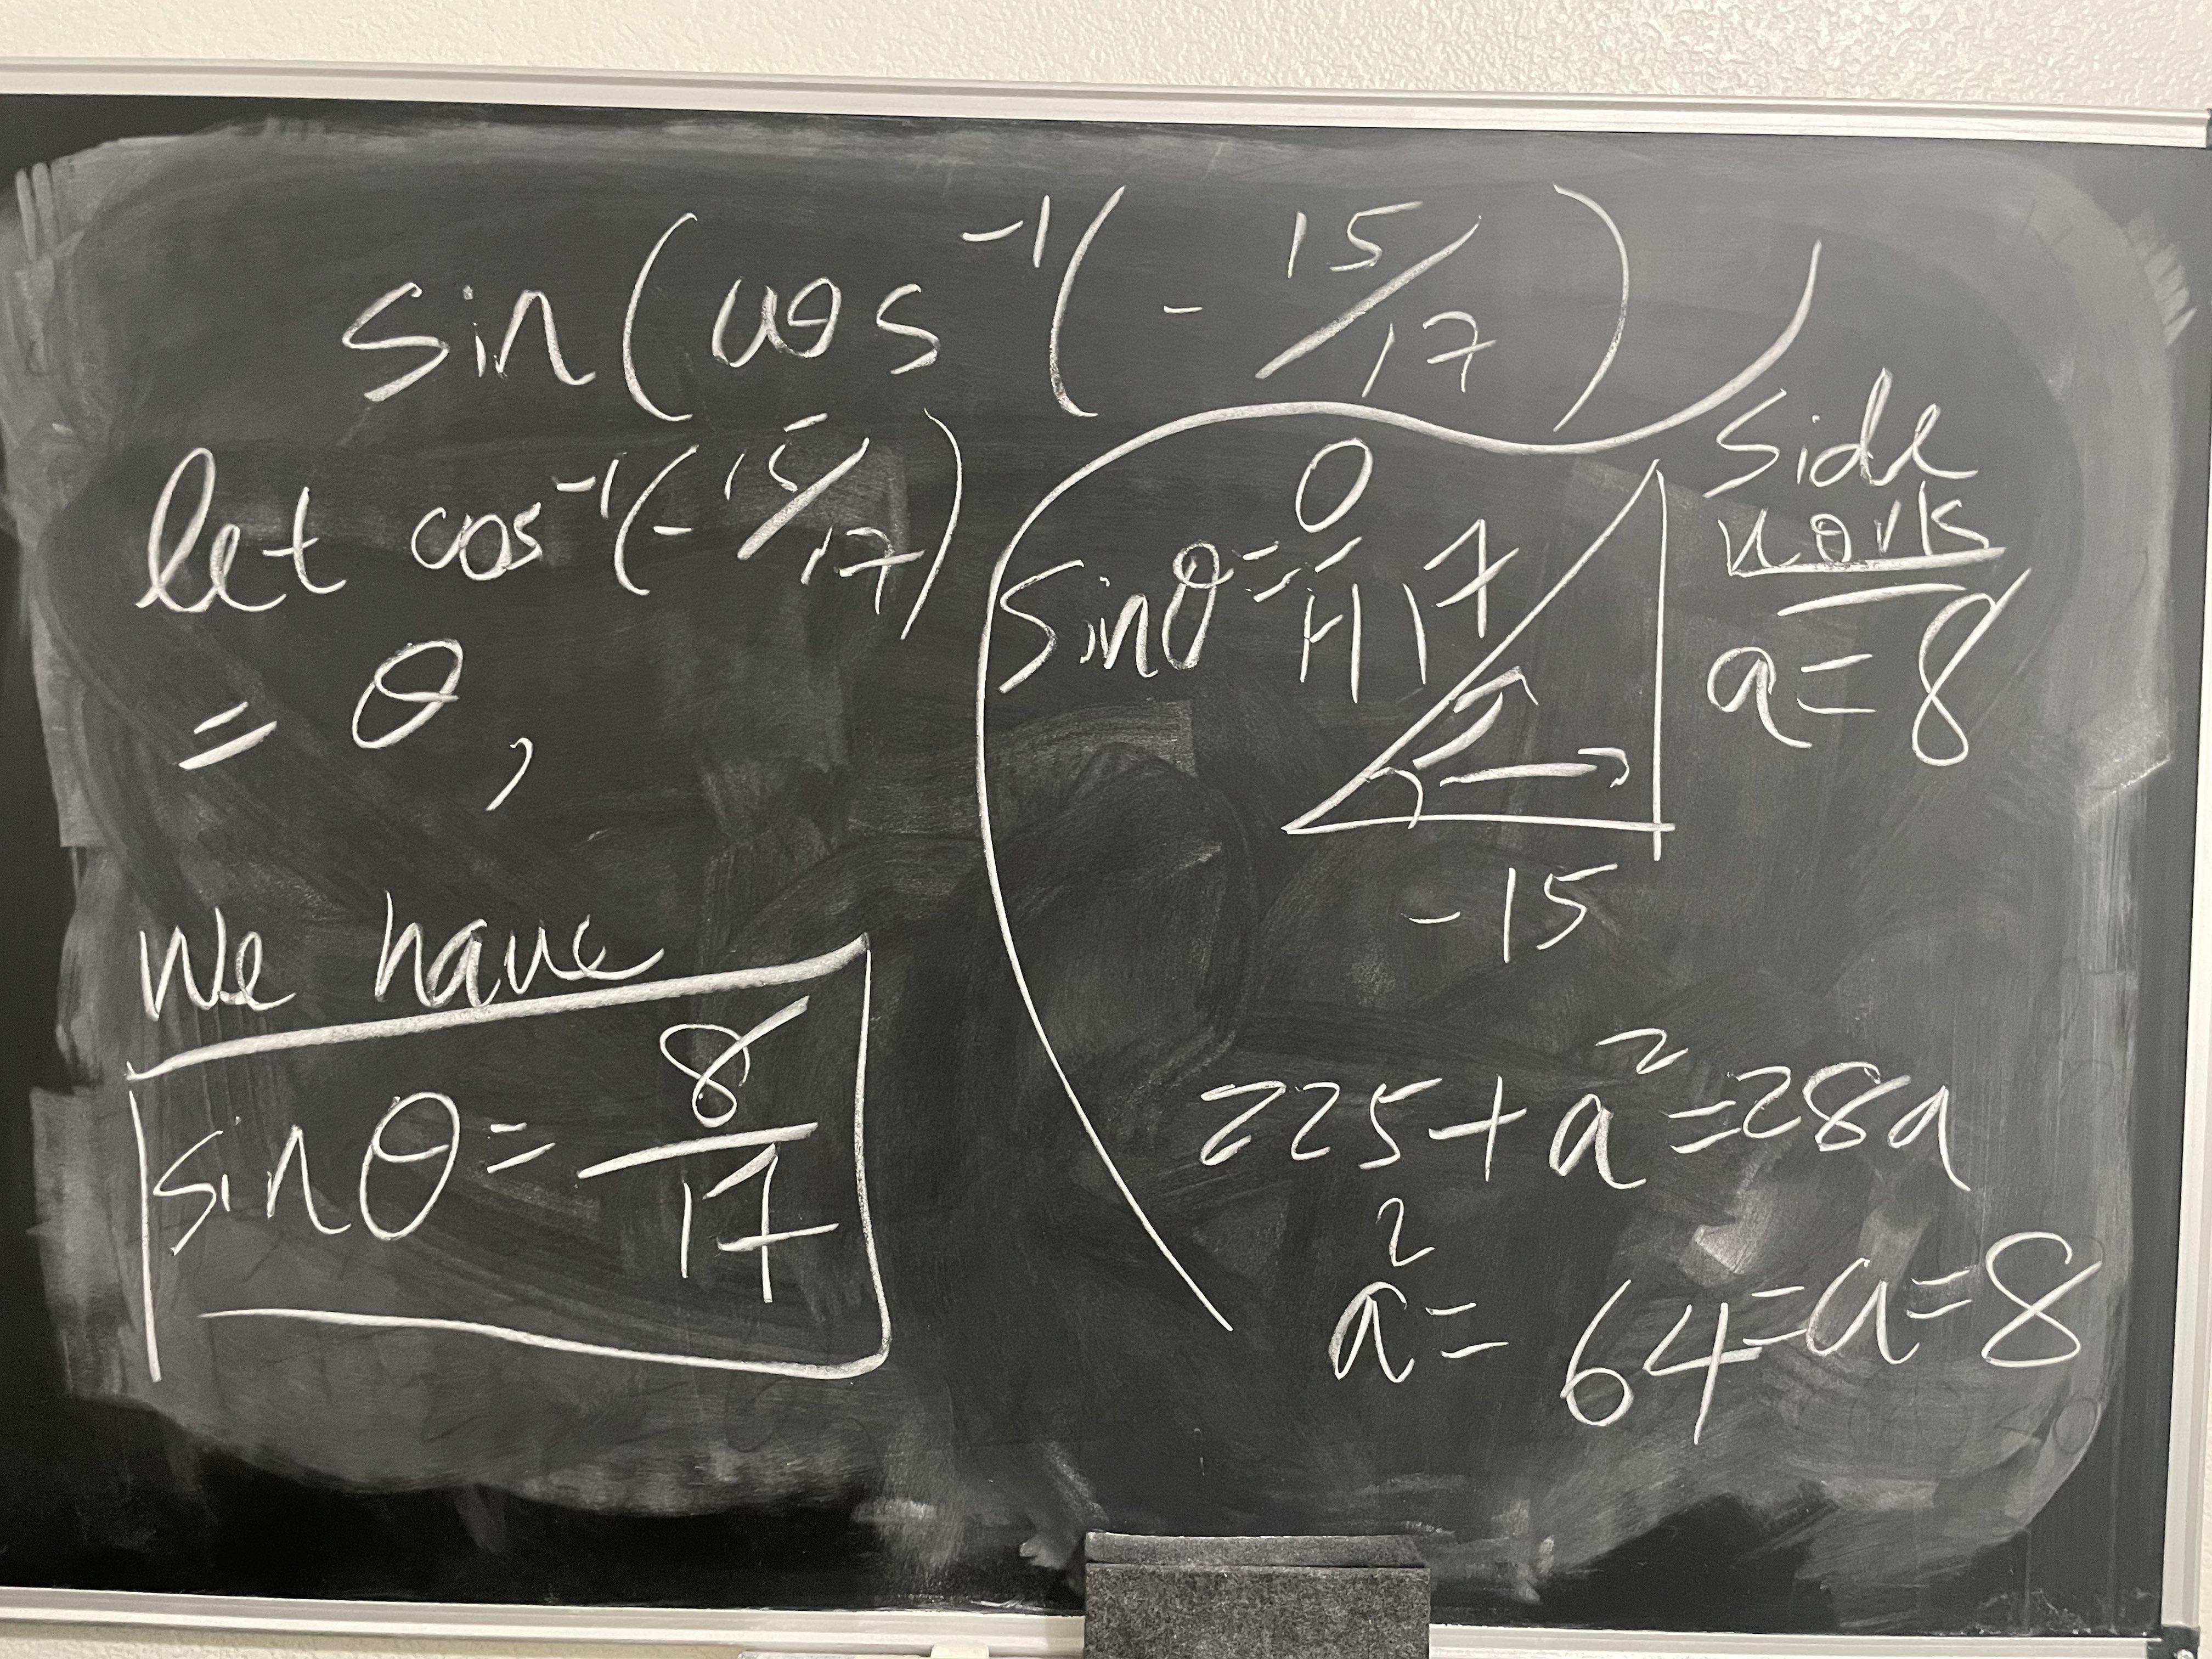 sin(cos⁻¹(-15/17))
let cos⁻¹(-15/17)
= θ,
we have
sinθ = 8/17
sinθ = O/H
17
-15
side
work
a = 8
225 + a² = 289
a² = 64 = a = 8